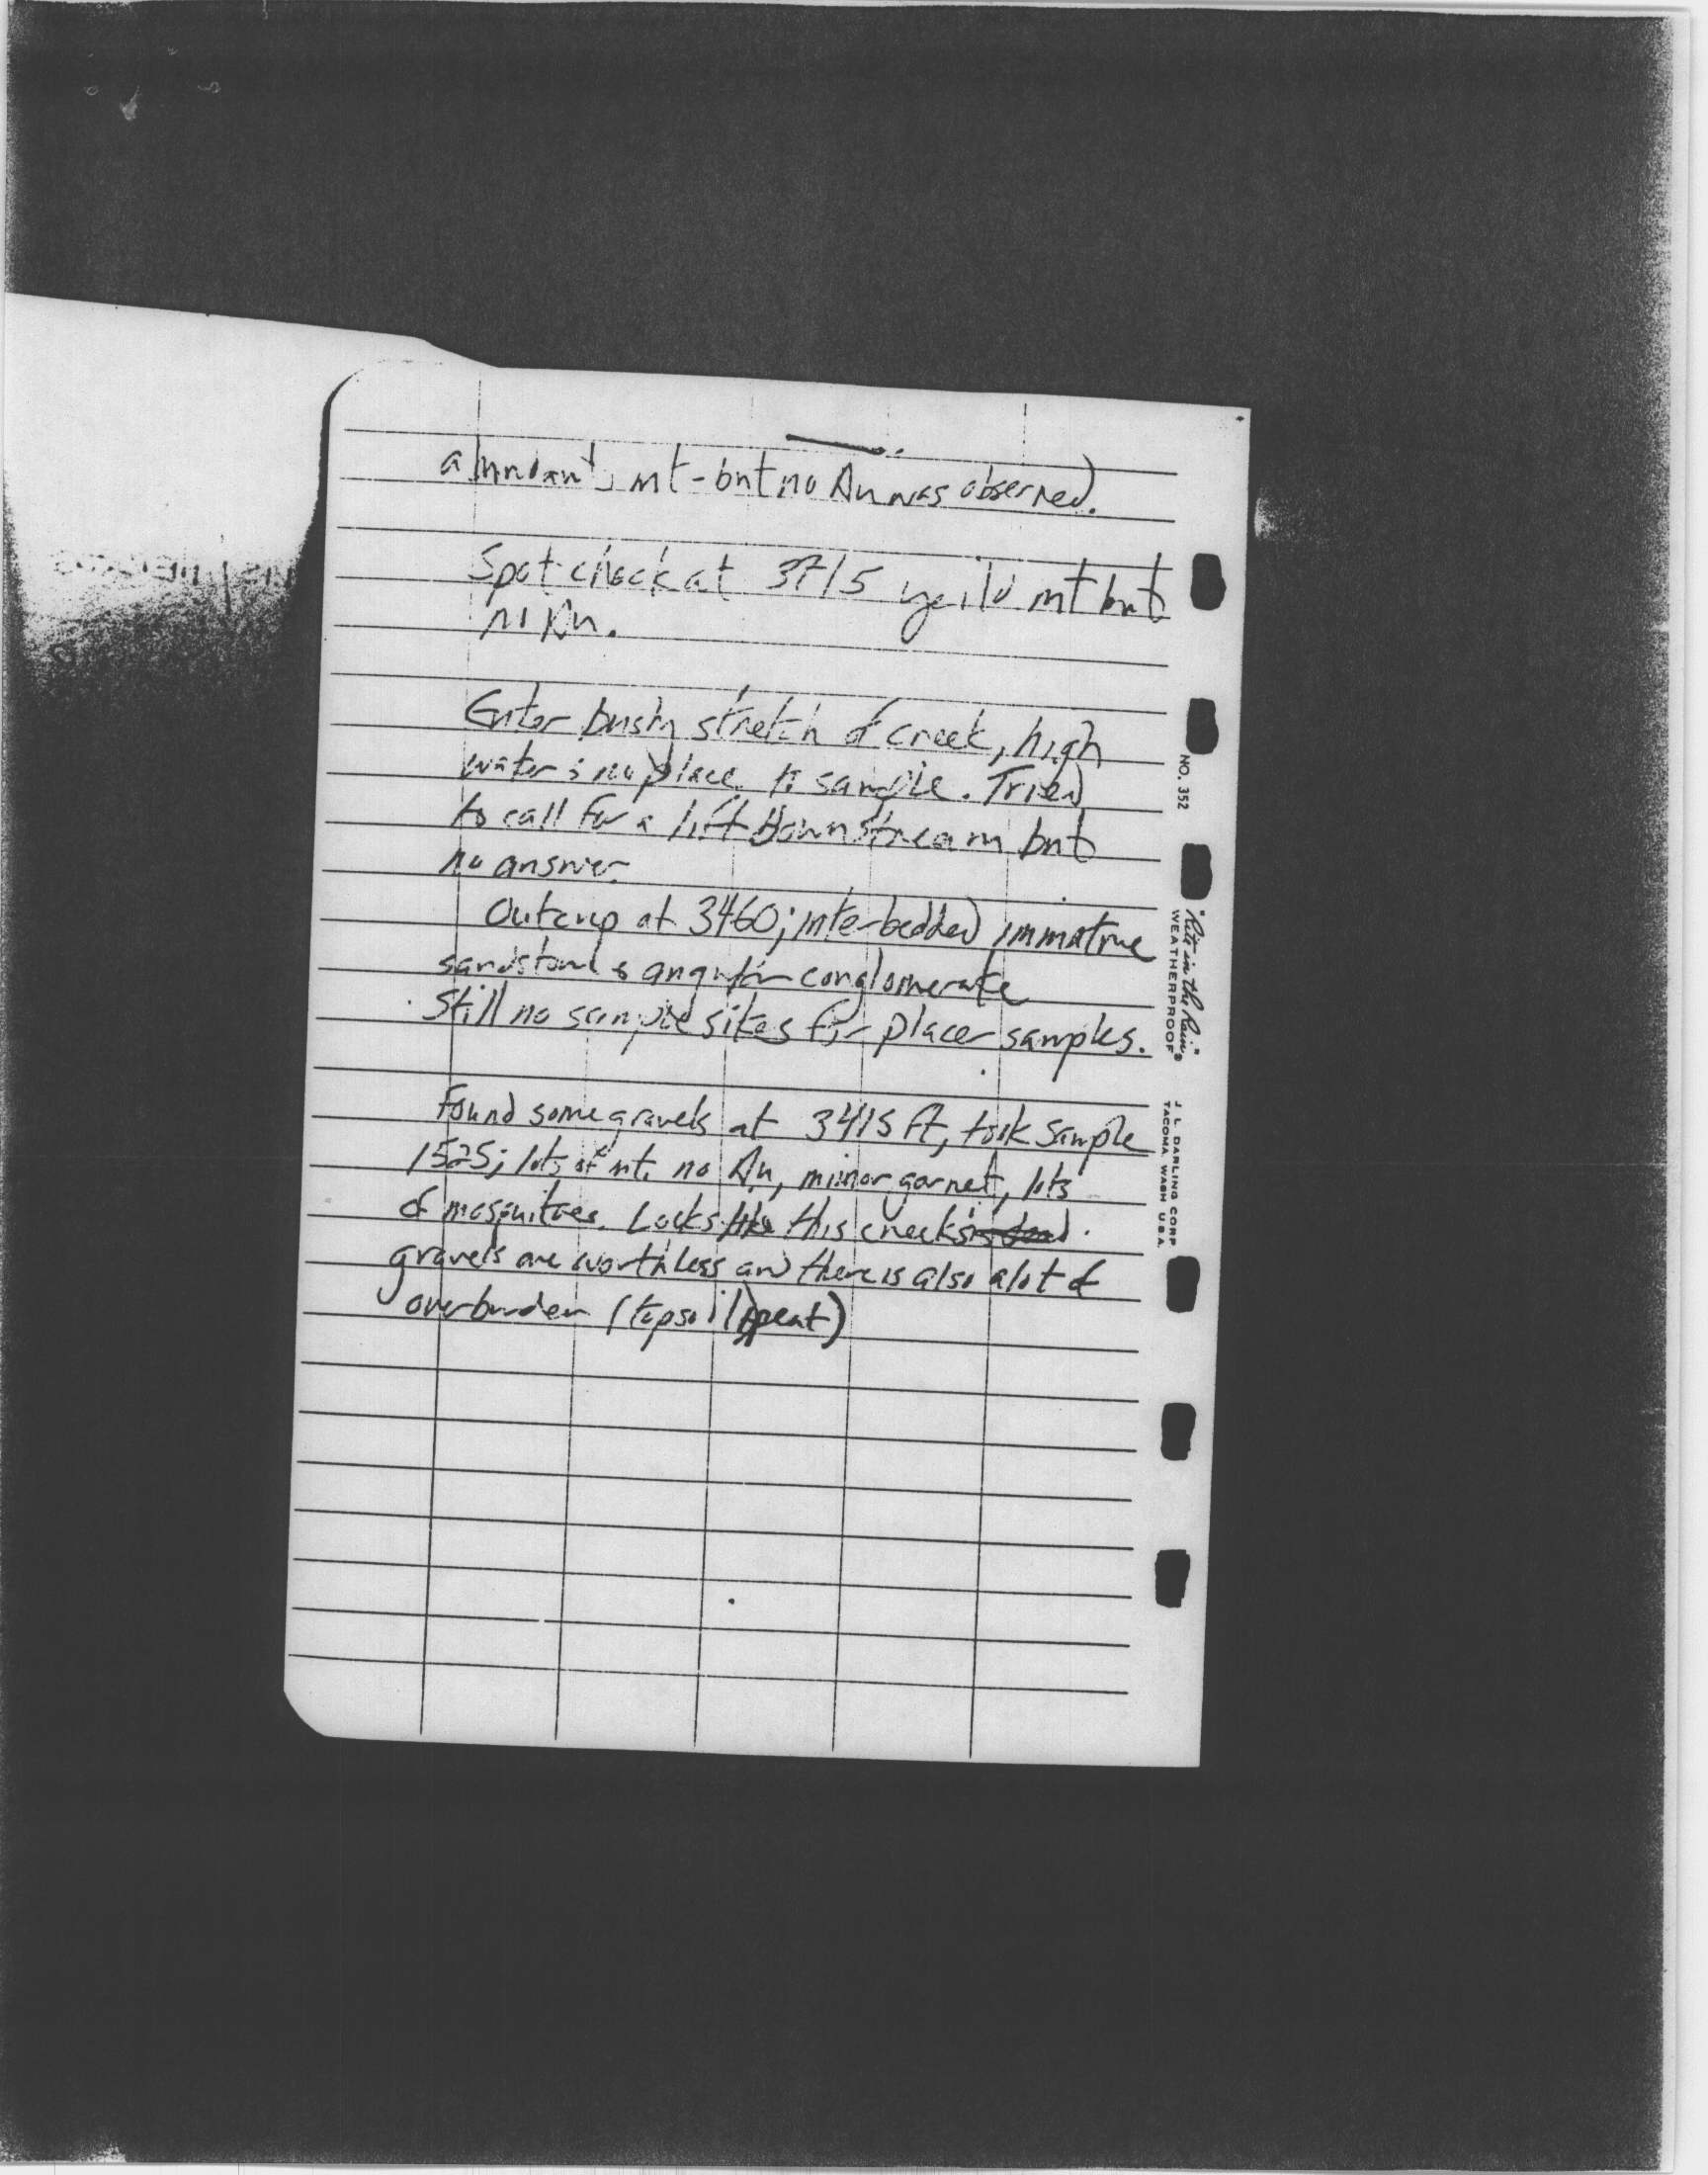 abundant mt - but no Au was observed.
Spot check at 3715 yeild mt but
no Au.
Enter bushy stretch of creek, high
water & no place to sample. Tried
to call for a lift downstream but
no answer.
Outcrop at 3460; interbedded immature
sandstone & angular conglomerate
Still no sample sites for placer samples.
Found some gravels at 3415 ft, took sample
1525; lots of mt. no Au, minor garnet, lots
of mosquitoes. Looks like this creeks
gravels are worthless and there is also alot of
overburden (topsoil, peat)
NO. 352
"Rite in the Rain"®
WEATHERPROOF
J. L. DARLING CORP
TACOMA, WASH U.S.A.